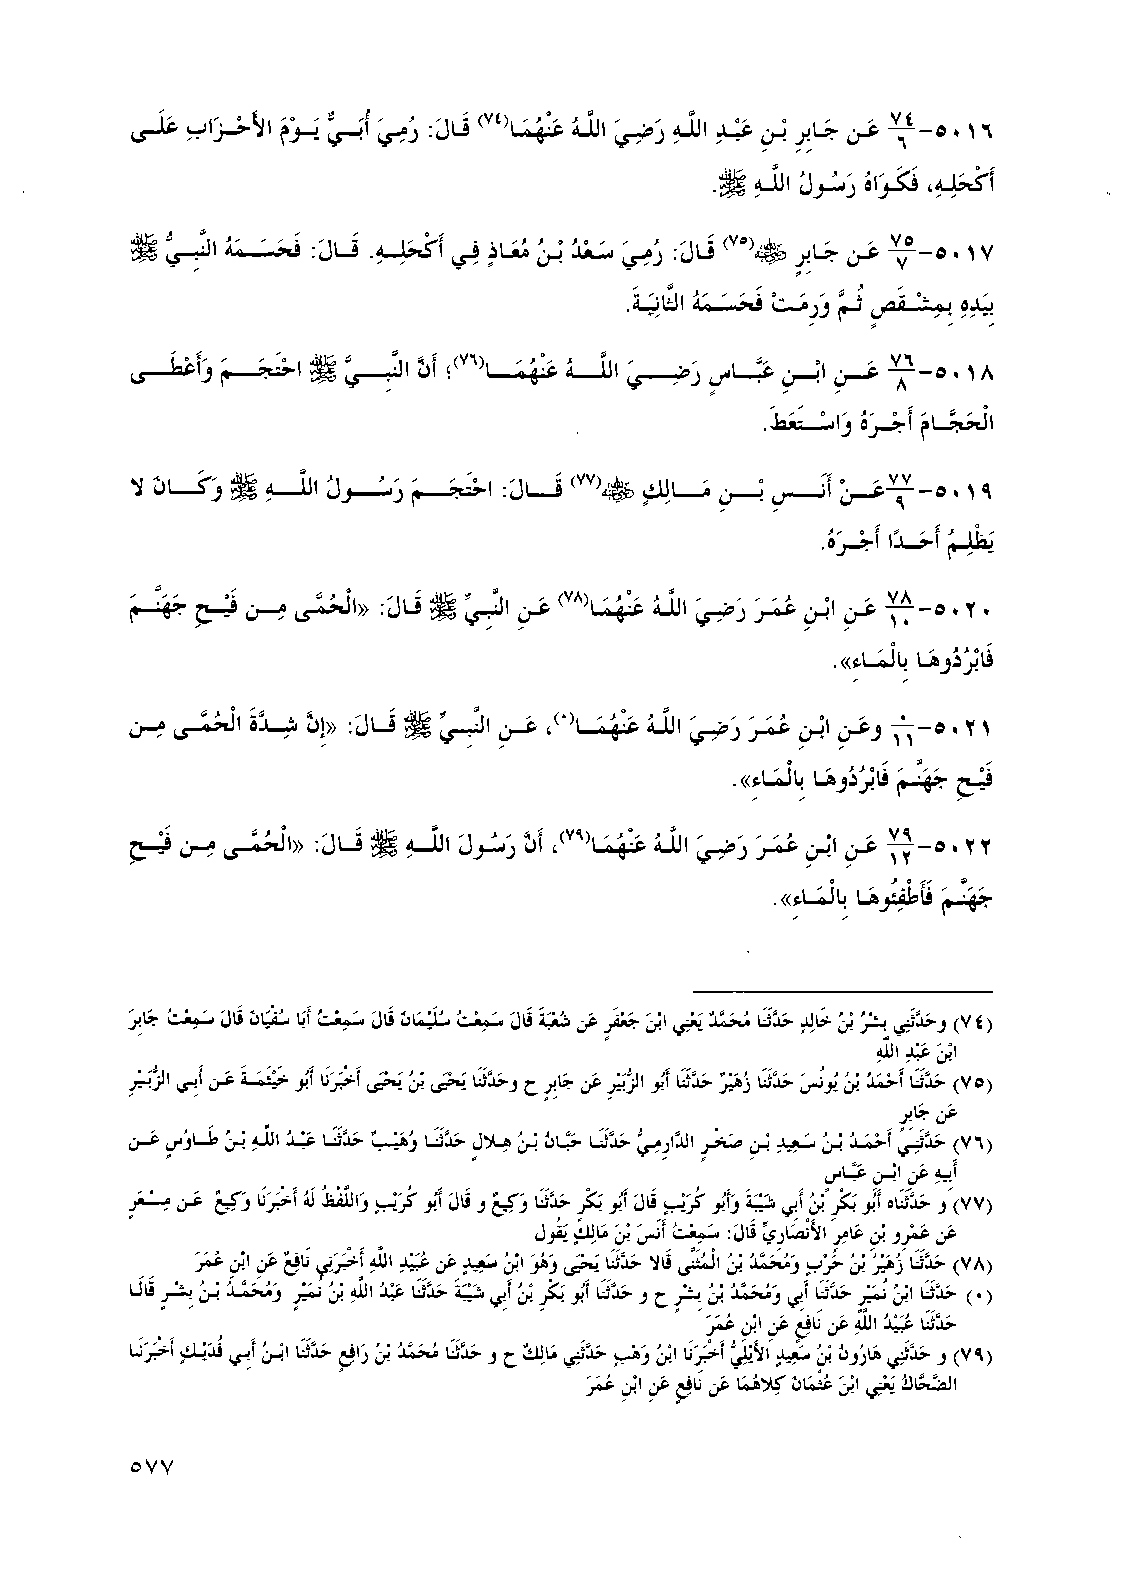 ٥٠١٦-٧٤/٦ عَن جَابِرِ بْنِ عَبْدِ اللَّهِ رَضِيَ اللَّهُ عَنْهُمَا(٧٤) قَالَ: رُمِيَ أُبَيٌّ يَوْمَ الأَحْزَابِ عَلَى
أَكْحَلِهِ، فَكَوَاهُ رَسُولُ اللَّهِ ﷺ.
٥٠١٧-٧٥/٧ عَن جَابِرٍ ﵁(٧٥) قَالَ: رُمِيَ سَعْدُ بْنُ مُعَاذٍ فِي أَكْحَلِهِ. قَالَ: فَحَسَمَهُ النَّبِيُّ ﷺ
بِيَدِهِ بِمِشْقَصٍ ثُمَّ وَرِمَتْ فَحَسَمَهُ الثَّانِيَةَ.
٥٠١٨-٧٦/٨ عَنِ ابْنِ عَبَّاسٍ رَضِيَ اللَّهُ عَنْهُمَا(٧٦)؛ أَنَّ النَّبِيَّ ﷺ احْتَجَمَ وَأَعْطَى
الْحَجَّامَ أَجْرَهُ وَاسْتَعَطَ.
٥٠١٩-٧٧/٩ عَنْ أَنَسِ بْنِ مَالِكٍ ﵁(٧٧) قَالَ: احْتَجَمَ رَسُولُ اللَّهِ ﷺ وَكَانَ لا
يَظْلِمُ أَحَدًا أَجْرَهُ.
٥٠٢٠-٧٨/١٠ عَنِ ابْنِ عُمَرَ رَضِيَ اللَّهُ عَنْهُمَا(٧٨) عَنِ النَّبِيِّ ﷺ قَالَ: «الْحُمَّى مِن فَيْحِ جَهَنَّمَ
فَابْرُدُوهَا بِالْمَاءِ».
٥٠٢١-٠/١١ وعَنِ ابْنِ عُمَرَ رَضِيَ اللَّهُ عَنْهُمَا(٠)، عَنِ النَّبِيِّ ﷺ قَالَ: «إِنَّ شِدَّةَ الْحُمَّى مِن
فَيْحِ جَهَنَّمَ فَابْرُدُوهَا بِالْمَاءِ».
٥٠٢٢-٧٩/١٢ عَنِ ابْنِ عُمَرَ رَضِيَ اللَّهُ عَنْهُمَا(٧٩)، أَنَّ رَسُولَ اللَّهِ ﷺ قَالَ: «الْحُمَّى مِن فَيْحِ
جَهَنَّمَ فَأَطْفِئُوهَا بِالْمَاءِ».
(٧٤) وحَدَّثَنِي بِشْرُ بْنُ خَالِدٍ حَدَّثَنَا مُحَمَّدٌ يَعْنِي ابْنَ جَعْفَرٍ عَن شُعْبَةَ قَالَ سَمِعْتُ سُلَيْمَانَ قَالَ سَمِعْتُ أَبَا سُفْيَانَ قَالَ سَمِعْتُ جَابِرَ
ابْنَ عَبْدِ اللَّهِ
(٧٥) حَدَّثَنَا أَحْمَدُ بْنُ يُونُسَ حَدَّثَنَا زُهَيْرٌ حَدَّثَنَا أَبُو الزُّبَيْرِ عَن جَابِرٍ ح وحَدَّثَنَا يَحْيَى بْنُ يَحْيَى أَخْبَرَنَا أَبُو خَيْثَمَةَ عَن أَبِي الزُّبَيْرِ
عَن جَابِرٍ
(٧٦) حَدَّثَنِي أَحْمَدُ بْنُ سَعِيدِ بْنِ صَخْرٍ الدَّارِمِيُّ حَدَّثَنَا حَبَّانُ بْنُ هِلالٍ حَدَّثَنَا وُهَيْبٌ حَدَّثَنَا عَبْدُ اللَّهِ بْنُ طَاوُسٍ عَن
أَبِيهِ عَنِ ابْنِ عَبَّاسٍ
(٧٧) و حَدَّثَنَاه أَبُو بَكْرِ بْنُ أَبِي شَيْبَةَ وَأَبُو كُرَيْبٍ قَالَ أَبُو بَكْرٍ حَدَّثَنَا وَكِيعٌ و قَالَ أَبُو كُرَيْبٍ وَاللَّفْظُ لَهُ أَخْبَرَنَا وَكِيعٌ عَن مِسْعَرٍ
عَن عَمْرِو بْنِ عَامِرٍ الأَنْصَارِيِّ قَالَ: سَمِعْتُ أَنَسَ بْنَ مَالِكٍ يَقُول
(٧٨) حَدَّثَنَا زُهَيْرُ بْنُ حَرْبٍ وَمُحَمَّدُ بْنُ الْمُثَنَّى قَالا حَدَّثَنَا يَحْيَى وَهُوَ ابْنُ سَعِيدٍ عَن عُبَيْدِ اللَّهِ أَخْبَرَنِي نَافِعٌ عَنِ ابْنِ عُمَرَ
(٠) حَدَّثَنَا ابْنُ نُمَيْرٍ حَدَّثَنَا أَبِي وَمُحَمَّدُ بْنُ بِشْرٍ ح و حَدَّثَنَا أَبُو بَكْرِ بْنُ أَبِي شَيْبَةَ حَدَّثَنَا عَبْدُ اللَّهِ بْنُ نُمَيْرٍ وَمُحَمَّدُ بْنُ بِشْرٍ قَالَا
حَدَّثَنَا عُبَيْدُ اللَّهِ عَن نَافِعٍ عَنِ ابْنِ عُمَرَ
(٧٩) و حَدَّثَنِي هَارُونُ بْنُ سَعِيدٍ الأَيْلِيُّ أَخْبَرَنَا ابْنُ وَهْبٍ حَدَّثَنِي مَالِكٌ ح و حَدَّثَنَا مُحَمَّدُ بْنُ رَافِعٍ حَدَّثَنَا ابْنُ أَبِي فُدَيْكٍ أَخْبَرَنَا
الضَّحَّاكُ يَعْنِي ابْنَ عُثْمَانَ كِلاهُمَا عَن نَافِعٍ عَنِ ابْنِ عُمَرَ
٥٧٧